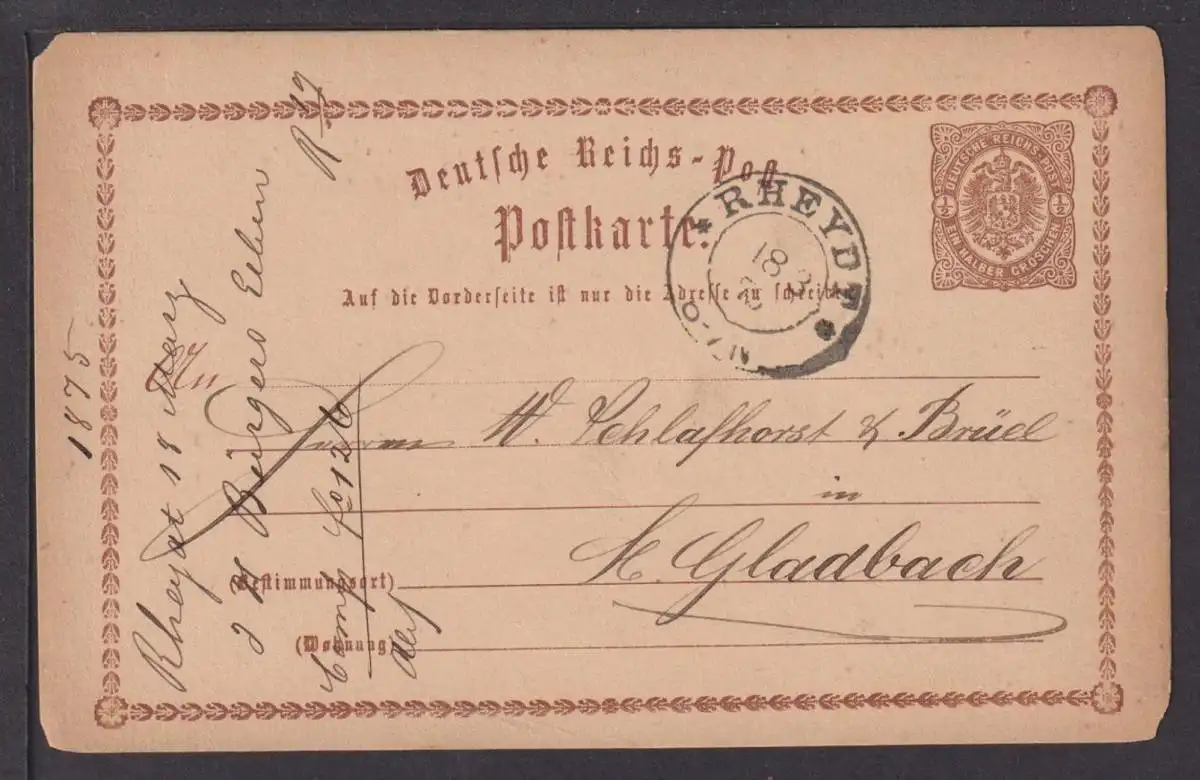 Deutsche Reichs-Post
Postkarte.
Auf die Vorderseite ist nur die Adresse zu schreiben
DEUTSCHE REICHS-POST
½ ½
EIN HALBER GROSCHEN
RHEYDT
18 3
An
Herrn W. Schlafhorst & Brüel
in
M. Gladbach
(Bestimmungsort)
(Wohnung)
1875
Rheydt 18 Marz
J H Bürgers
R 19